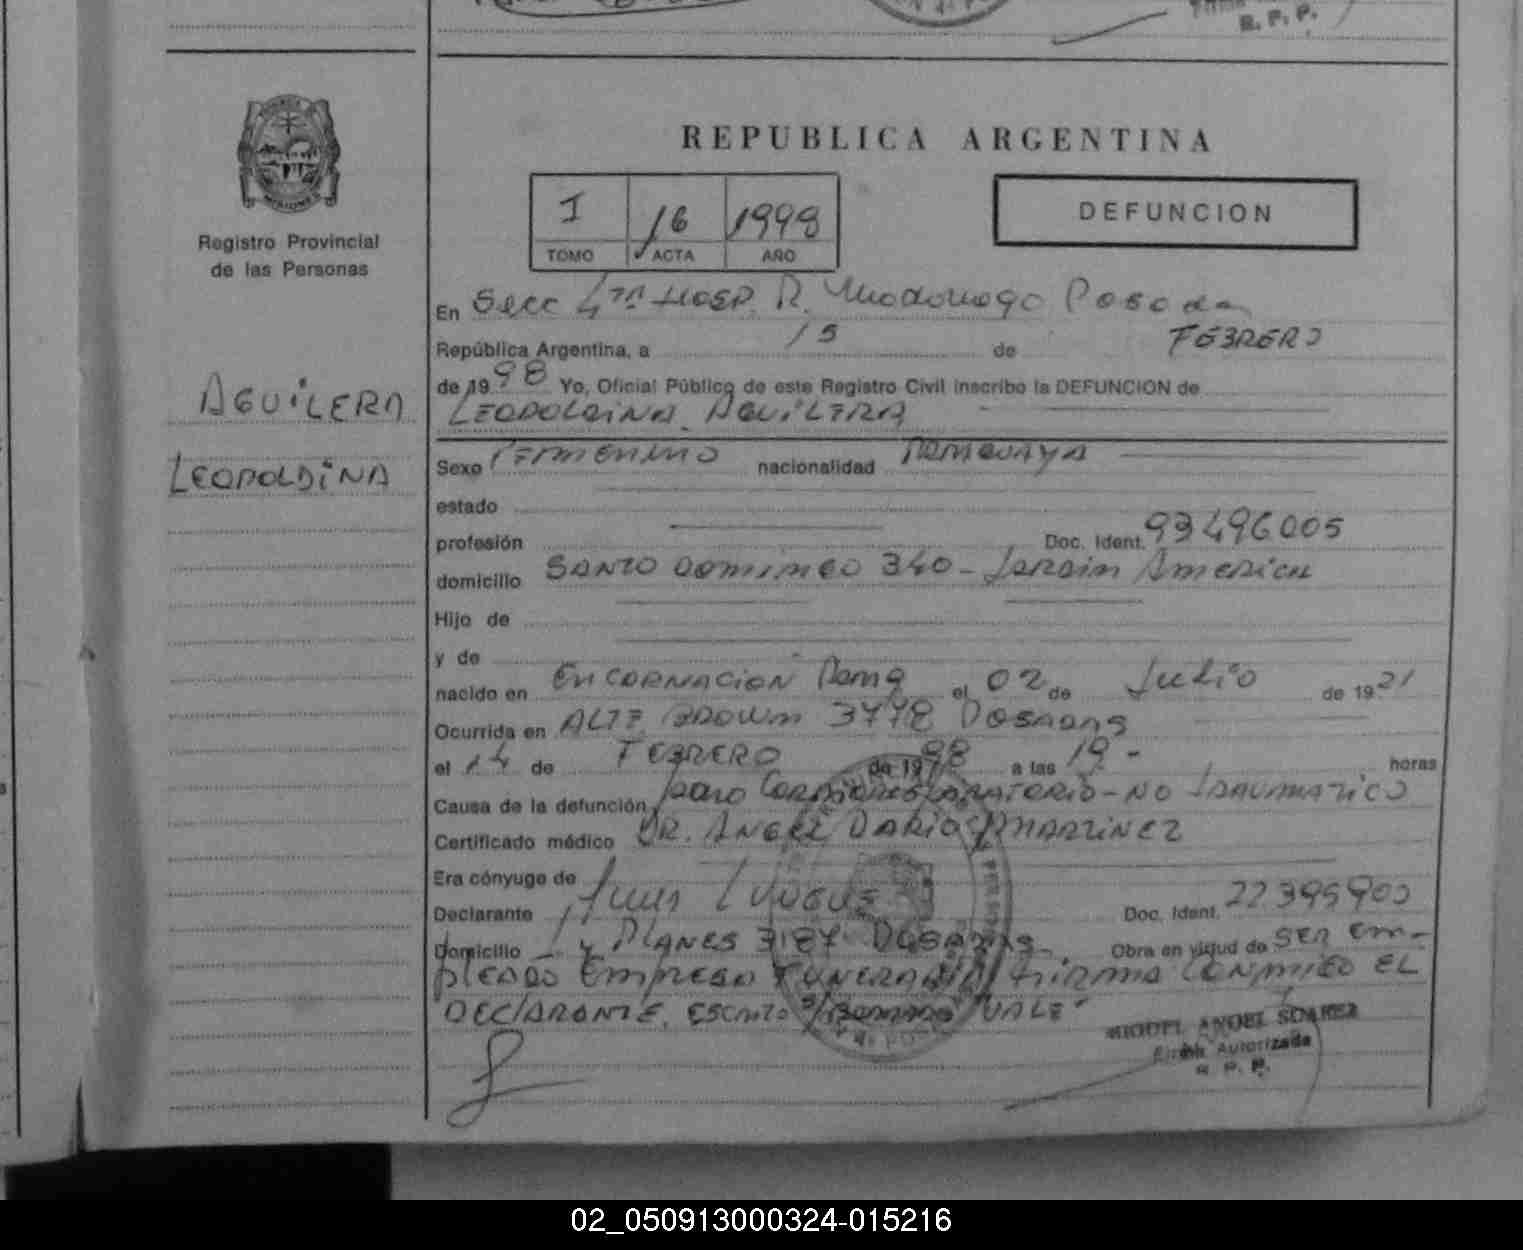 R. P. P.
REPUBLICA ARGENTINA
I 16 1998
TOMO ACTA AÑO
DEFUNCION
Registro Provincial
de las Personas
AGUILERA
LEOPOLDINA
En Secc 4ta HOSP. R. Madariaga Posadas
República Argentina, a 15 de FEBRERO
de 1998 Yo, Oficial Público de este Registro Civil inscribo la DEFUNCION de
LEOPOLDINA AGUILERA
Sexo FEMENINO nacionalidad PARAGUAYA
estado
profesión Doc. Ident. 93496005
domicilio SANTO DOMINGO 340 - Jardin America
Hijo de
y de
nacido en ENCARNACION el 02 de Julio de 1921
Ocurrida en ALTE BROWN 3778 POSADAS
el 14 de FEBRERO de 1998 a las 19 - horas
Causa de la defunción paro CARDIORESPIRATORIO - NO TRAUMATICO
Certificado médico DR. ANGEL DARIO MARTINEZ
Era cónyuge de
Declarante Doc. Ident.
Domicilio PLANES 3187 POSADAS Obra en virtud de SER EM-
PLEADO EMPRESA FUNERARIA FIRMA CONMIGO EL
DECLARANTE. ESCRITO S/ "VALE"
MIGUEL ANGEL SUAREZ
Firma Autorizada
R. P. P.
02_050913000324-015216